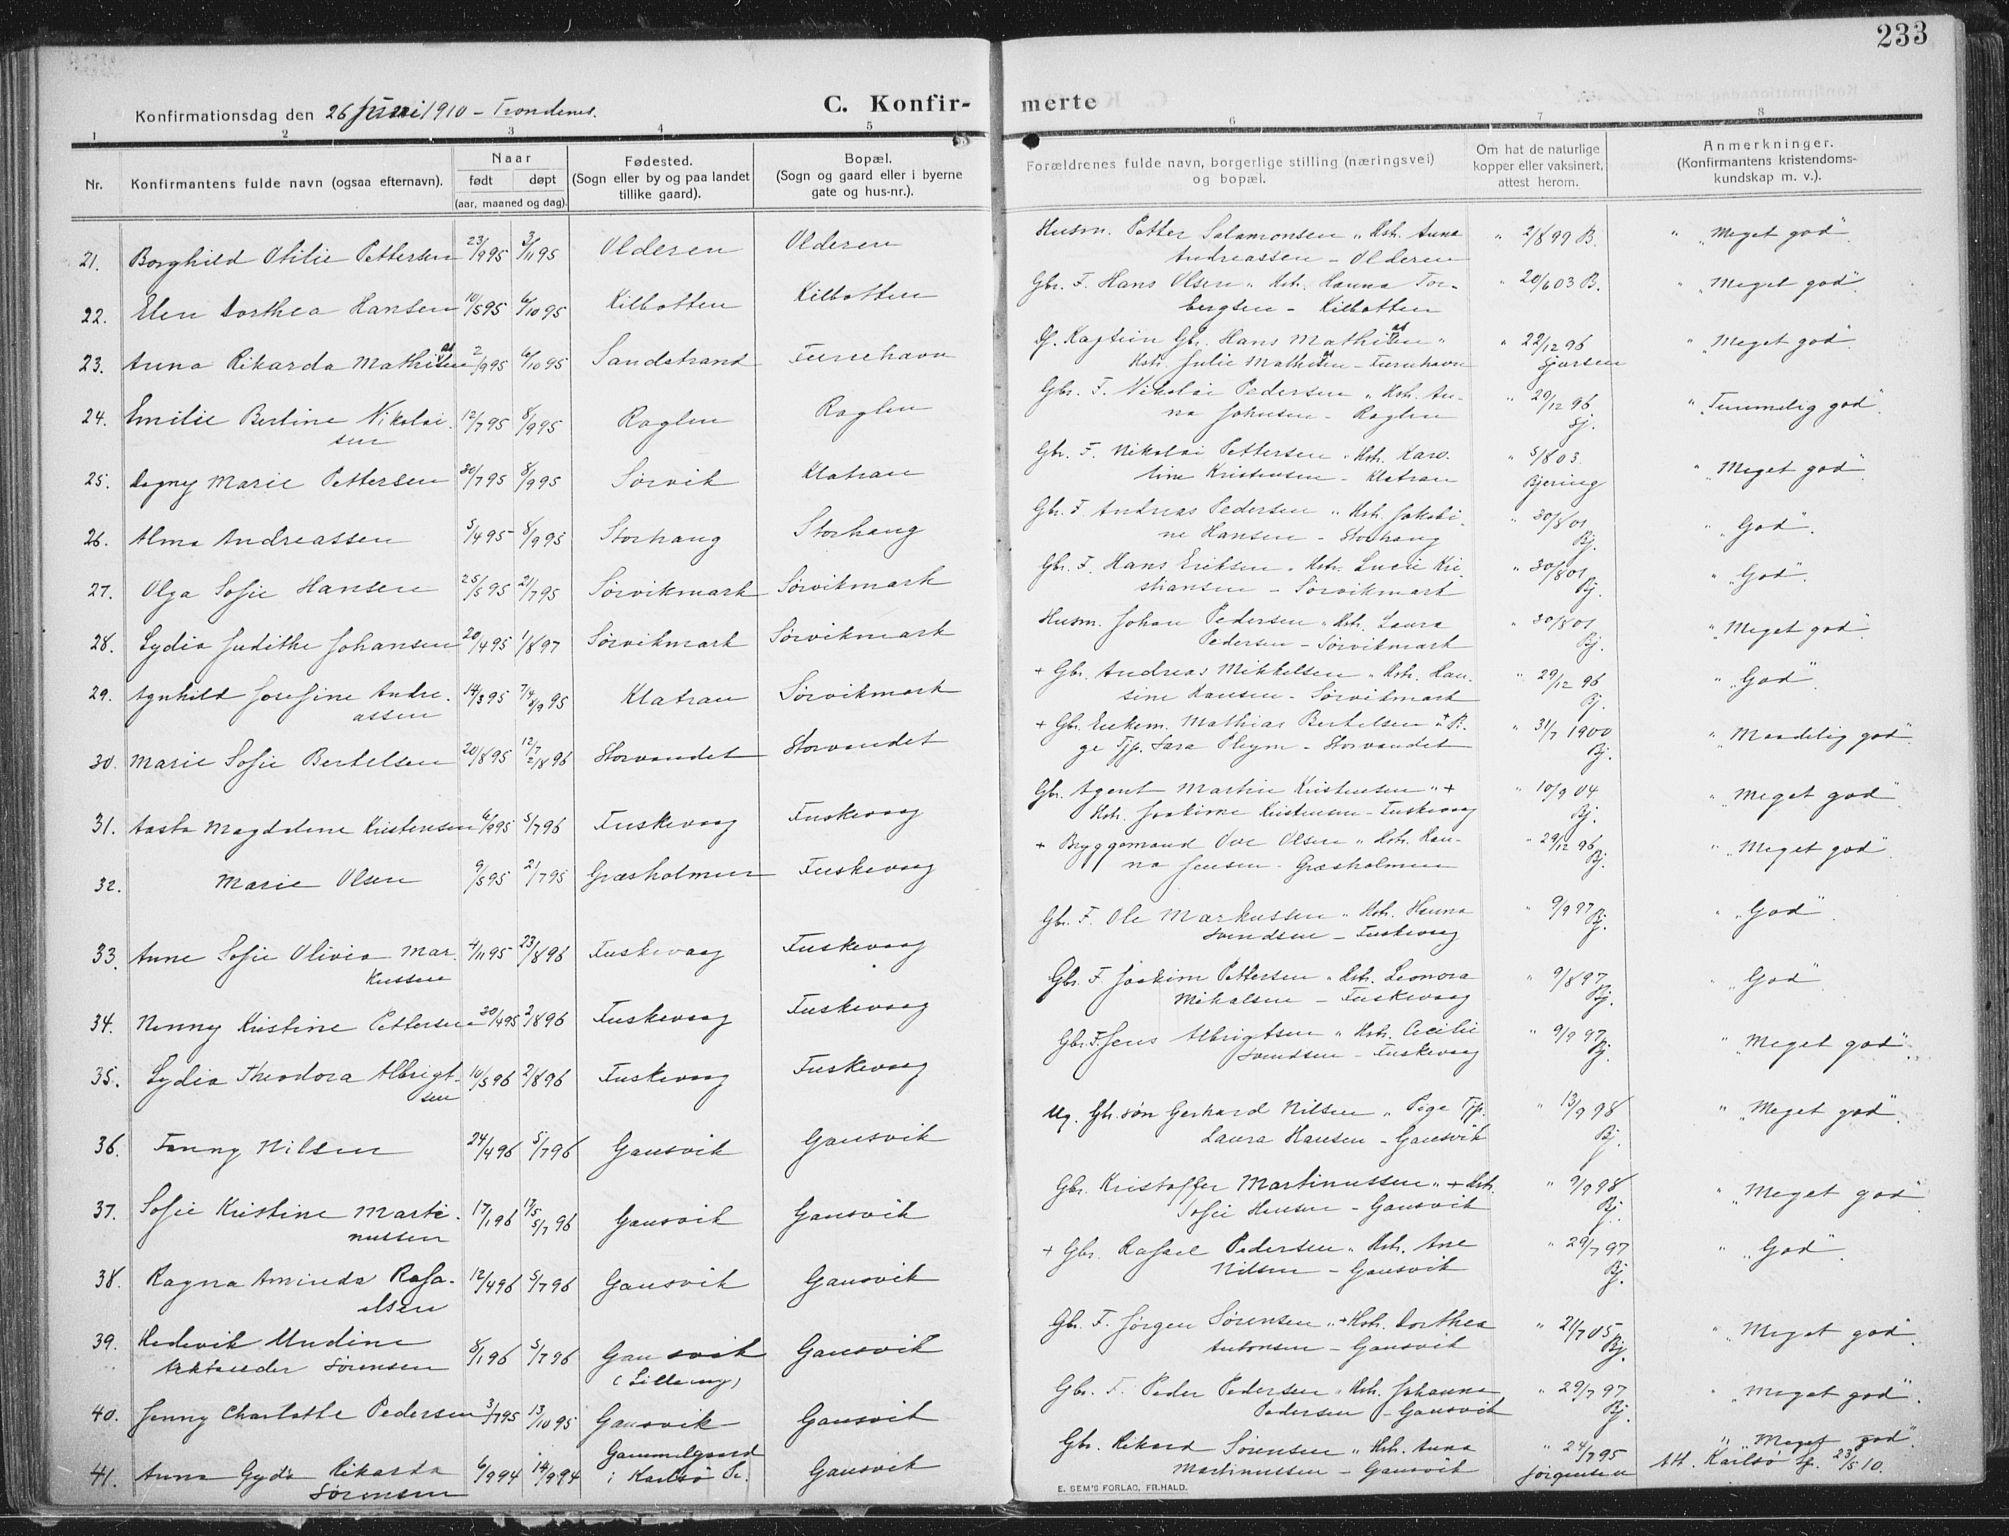 233
Konfirmationsdag den 26 Juni 1910 – Trondenes.
C. Konfir-
merte
1 2 3 4 5 6 7 8
Nr.
Konfirmantens fulde navn (ogsaa efternavn).
Naar
født
døpt
(aar, maaned og dag).
Fødested.
(Sogn eller by og paa landet
tillike gaard).
Bopæl.
(Sogn og gaard eller i byerne
gate og hus-nr.).
Forældrenes fulde navn, borgerlige stilling (næringsvei)
og bopæl.
Om hat de naturlige
kopper eller vaksinert,
attest herom.
Anmerkninger.
(Konfirmantens kristendoms-
kundskap m. v.).
21. Borghild Otilie Pettersen 23/9 95 3/11 95 Olderen Olderen Husm. Petter Salamonsen " Hst. Anna " 2/8 99 B. " "Meget god".
Andreassen – Olderen
22. Elen Dorthea Hansen 10/5 95 6/10 95 Kilbotten Kilbotten Gbr. F. Hans Olsen " Hst. Hanna Tor- " 20/6 03 B. " "Meget god".
bergsen – Kilbotten
23. Anna Rikarda Mathisen 2/9 95 6/10 95 Sandstrand Furuhavn Kaptein Gbr. Hans Mathisen " " 22/12 96 " "Meget god".
Hst. Julie Mathisen – Furuhavn
24. Emilie Bertine Nikolai- 12/7 95 8/9 95 Roglen Roglen Gbr. F. Nikolai Pedersen " Hst. An- " 29/12 96 " "Temmelig god".
sen na Johnsen – Roglen Sj.
25. Dagny Marie Pettersen 30/7 95 8/9 95 Sørvik Klatran Gbr. F. Nikolai Pettersen " Hst. Karo- " 5/8 03 " "Meget god".
line Kristensen – Klatran Bjering
26. Alma Andreassen 5/4 95 8/9 95 Storhaug Storhaug Gbr. F. Andreas Pedersen " Hst. Jakobi- " 30/8 01 " "God".
ne Hansen – Storhaug Bj.
27. Olga Sofie Hansen 25/5 95 21/7 95 Sørvikmark Sørvikmark Gbr. F. Hans Eriksen " Hst. Lucie Kri- " 30/8 01 " "God".
stiansen – Sørvikmark Bj.
28. Lydia Judithe Johansen 20/4 95 1/8 97 Sørvikmark Sørvikmark Husm. Johan Pedersen " Hst. Laura " 30/8 01 " "Meget god".
Pedersen – Sørvikmark Bj.
29. Agnhild Josefine Andre- 14/3 95 7/4 8/9 95 Klatran Sørvikmark + Gbr. Andreas Mikkelsen " Hst. Han- " 29/12 96 " "God".
assen sine Hansen – Sørvikmark Bj.
30. Marie Sofie Bertelsen 20/8 95 12/7 2/8 96 Storvandet Storvandet + Gbr. Enkem. Mathias Bertelsen " + Pi- " 31/7 1900 " "Maadelig god".
ge Tjp. Sara Pleym – Storvandet Bj.
31. Aasta Magdalene Kristensen 6/9 95 5/7 96 Fuskevaag Fuskevaag Gbr. Agent Martin Kristensen " + " 10/9 04 " "Meget god".
Hst. Joakime Kristensen – Fuskevaag Bj.
32. Marie Olsen 9/5 95 21/7 95 Græsholmen Fuskevaag + Bryggemand Ove Olsen " Hst. Han- " 29/12 96 " "Meget god".
na Jensen – Græsholmen Bj.
33. Anne Sofie Olivia Mar- 4/11 95 23/8 96 Fuskevaag Fuskevaag Gbr. F. Ole Markussen " Hst. Hanna " 9/9 97 " "God".
kussen Svendsen – Fuskevaag Bj.
34. Nenny Kristine Pettersen 30/4 95 2/8 96 Fuskevaag Fuskevaag Gbr. F. Joakim Pettersen " Hst. Leonora " 9/8 97 " "God".
Mikalsen – Fuskevaag Bj.
35. Lydia Theodora Albrigt- 10/5 96 2/8 96 Fuskevaag Fuskevaag Gbr. F. Jens Albrigtsen " Hst. Cecilie " 9/9 97 " "Meget god".
sen Svendsen – Fuskevaag Bj.
36. Fanny Nilsen 24/4 96 5/7 96 Gausvik Gausvik Ug. Gbr. søn Gerhard Nilsen " Pige Tjp. " 13/9 98 " "Meget god".
Laura Hansen – Gausvik Bj.
37. Sofie Kristine Marti- 17/1 96 17/5 5/7 96 Gausvik Gausvik Gbr. Kristoffer Martinussen " + Hst. " 9/9 98 " "Meget god".
nussen Sofie Hansen – Gausvik Bj.
38. Ragna Aminda Rafa- 12/4 96 5/7 96 Gausvik Gausvik + Gbr. Rafael Pedersen " Hst. Ane " 29/7 97 " "God".
elsen Nilsen – Gausvik Bj.
39. Hedevik Undine 8/1 96 5/7 96 Gausvik Gausvik Gbr. F. Jørgen Sørensen " + Hst. Dorthea " 21/7 05 " "Meget god".
Sørensen Antonsen – Gausvik Bj.
40. Jenny Charlotte Pedersen 3/7 95 13/10 95 Gausvik Gausvik Gbr. F. Peder Pedersen " Hst. Johanna " 29/7 97 " "Meget god".
Pedersen – Gausvik Bj.
41. Anna Gyda Rikarda 6/9 94 14/9 94 Gammelgaard Gausvik Gbr. Rikard Sørensen " Hst. Anna " 24/7 95 " "Meget god".
Sørensen i Karlsø Martinussen – Gausvik Jørgensen Att. Karlsø 23/5 10.
E. SEM'S FORLAG, FR.HALD.